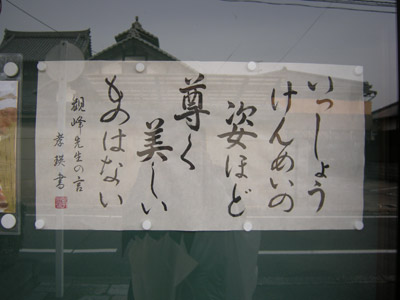 いっしょう
けんめいの
姿ほど
尊く
美しい
ものはない
観峰先生の言
孝瑛書